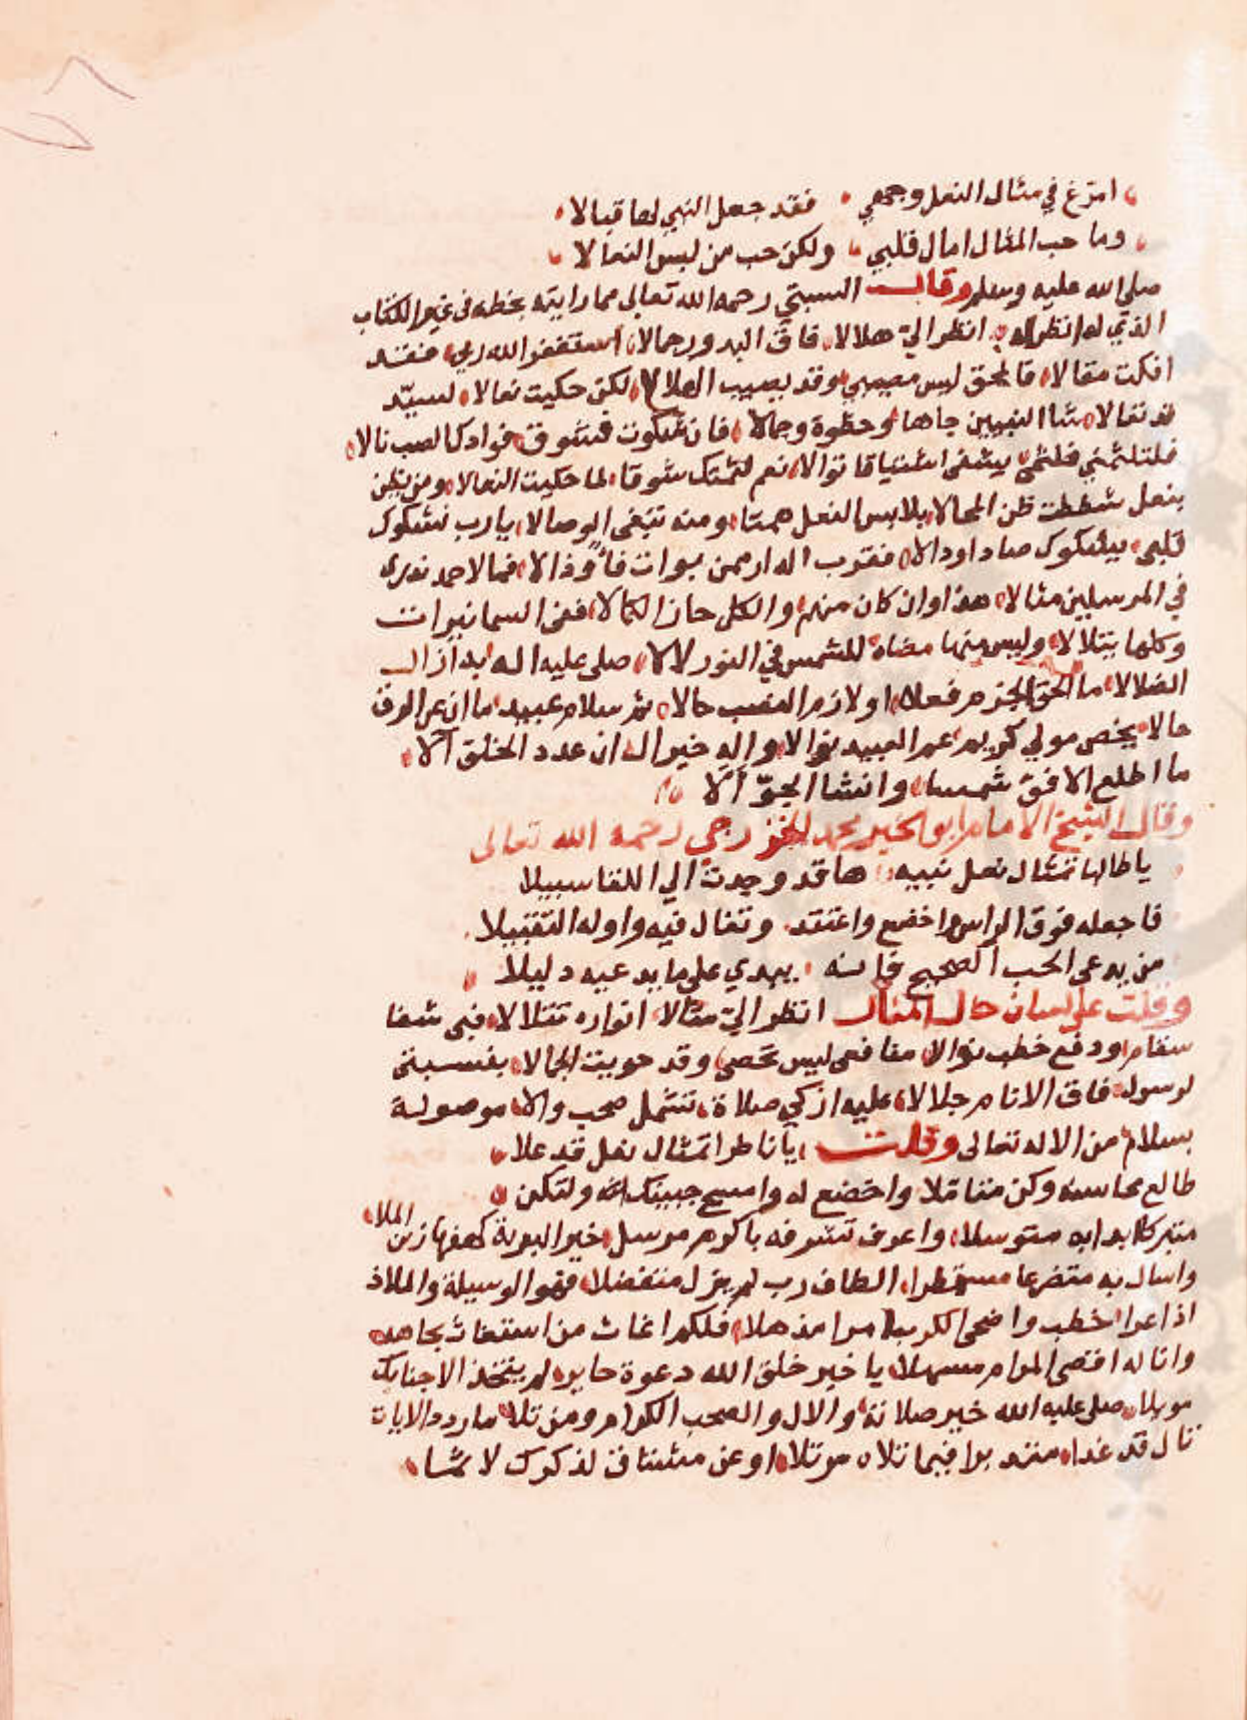 امرغ في مثال النعل وجهي فقد جعل النبي لها قبالا
وما حب المثال امال قلبي ولكن حب من لبس النعالا
صلى الله عليه وسلم وقال السبتي رحمه الله تعالى مما رايته بخطه في غير الكتاب
الذي له انظر الي هلالا فاق البدور جمالا استغفر الله ربي فقد
افكت مقالا فالمحق ليس مصيبي وقد يصيب الهلالا لكن حكيت نعالا لسيد
قد تعالا جاها وحظوة وجالا فان شكوت فشوق فواد كالصب نالا
فلتلثمني فلثمي يشفى اشتياقا توالا نعم لثمتك شوقا لما حكيت النعالا ومن يظن
بنعل شططت ظن المحالا بلابس النعل همنا ومنه نبتغى الوصالا يارب نشكوك
قلبي بيشكوك صاد اودالا فما لاحد نعرى
في المرسلين مثالا هذا وان كان منهم والكل حاز الكمالا ففى السما نيرات
وكلها يتلالا وليس منها مضاه للشمس في النور لالا صلى عليه اله به ازال
الضلالا ما الحق الجزم فعلا او لازم النصب حالا ثم سلام عبيد ما ان عن الرق
حالا يخص مولي كريم عم العبيد نوالا واله خير ال ان عدد الخلق آلا
ما اطلع الافق شمسا وانشا الجو آلا
وقال الشيخ الامام ابو الخير محمد الجزرجي رحمه الله تعالى
يا طالبا تمثال نعل نبيه ها قد وجدت الي اللقا سبيلا
فاجعله فوق الراس واخضع واعتقد وتغال فيه واوله التقبيلا
من يدعى الحب الصحيح فانه يهدي على ما يدعيه دليلا
وقلت على لسان حال المثال انظر الي مثالا انواره تتلالا فبى شفا
سقام ودفع خطب نوالا منافعى ليس تحصى وقد حويت الجمالا بنسبتى
لرسول فاق الانام جلالا عليه ازكي صلاة تشمل صحب والا موصولة
بسلام من الاله تعالى وقلت يا ناظرا تمثال نعل قد علا
طالع محاسنه وكن متاملا واخضع له وامسح جبينك ولتكن
متبركا بدابه متوسلا واعرف تشرفه باكرم مرسل خير البرية كهفها زين الملا
واسال به متضرعا مستمطرا الطاف رب لم يزل متفضلا فهو الوسيلة والملاذ
اذا عرا خطب واضحى الكرب مرا مذهلا فلكم اغاث من استغاث بجاهه
واناله اقصى المرام مسهلا يا خير خلق الله دعوة حاير لم يتخذ الا جنابك
موبلا صلى عليه الله خير صلاته والال والصحب الكرام ومن تلا ما ردد الايات
تال قد غدا متدبرا فيما تلاه مرتلا او عن مشتاق لذكرك